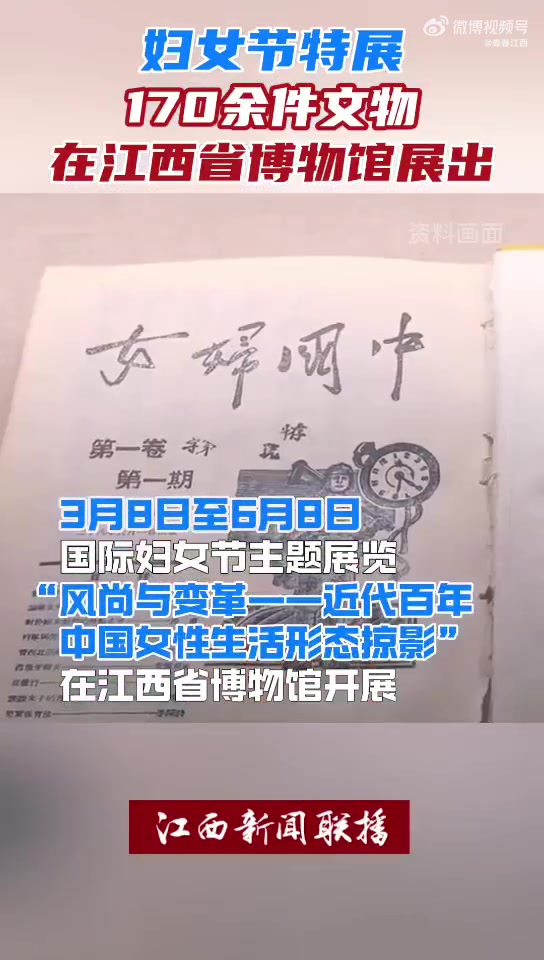 微博视频号
@青春江西
妇女节特展
170余件文物
在江西省博物馆展出
资料画面
女婦國中
第一卷
第一期
3月8日至6月8日
国际妇女节主题展览
“风尚与变革——近代百年
中国女性生活形态掠影”
在江西省博物馆开展
江西新闻联播